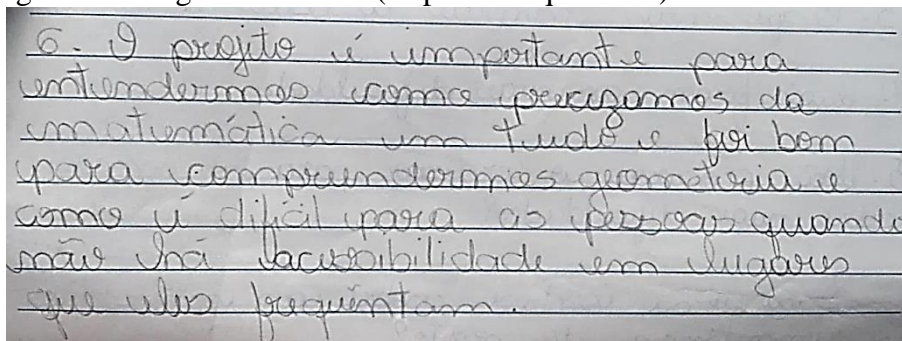 6. O projeto é importante para
entendermos como precisamos da
matemática em tudo e foi bom
para compreendermos geometria e
como é difícil para as pessoas quando
não há acessibilidade em lugares
que eles frequentam.